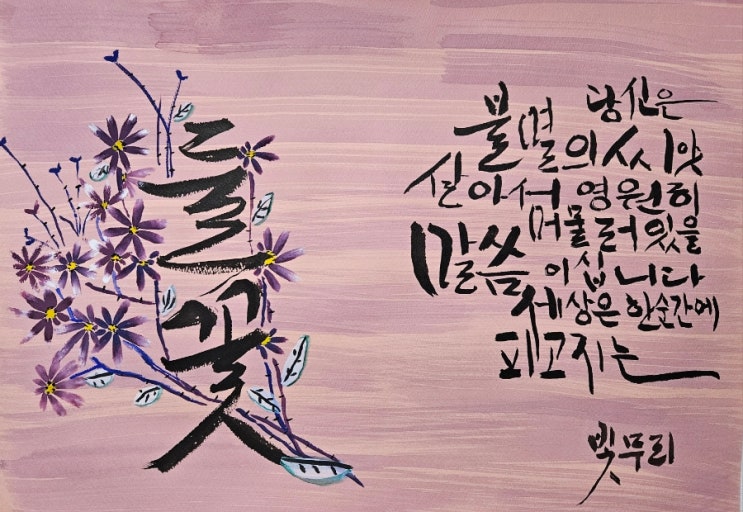 들꽃
당신은
불멸의 씨앗
살아서 영원히
머물러있을
말씀이십니다
세상은 한순간에
피고지는
빛무리